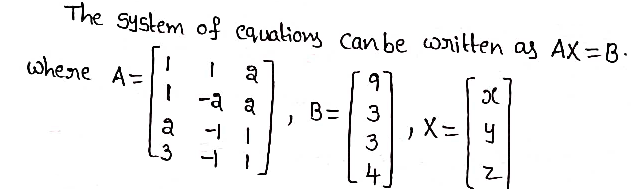 The system of equations can be written as AX = B.
where A = [1 1 2; 1 -2 2; 2 -1 1; 3 -1 1], B = [9; 3; 3; 4], X = [x; y; z]